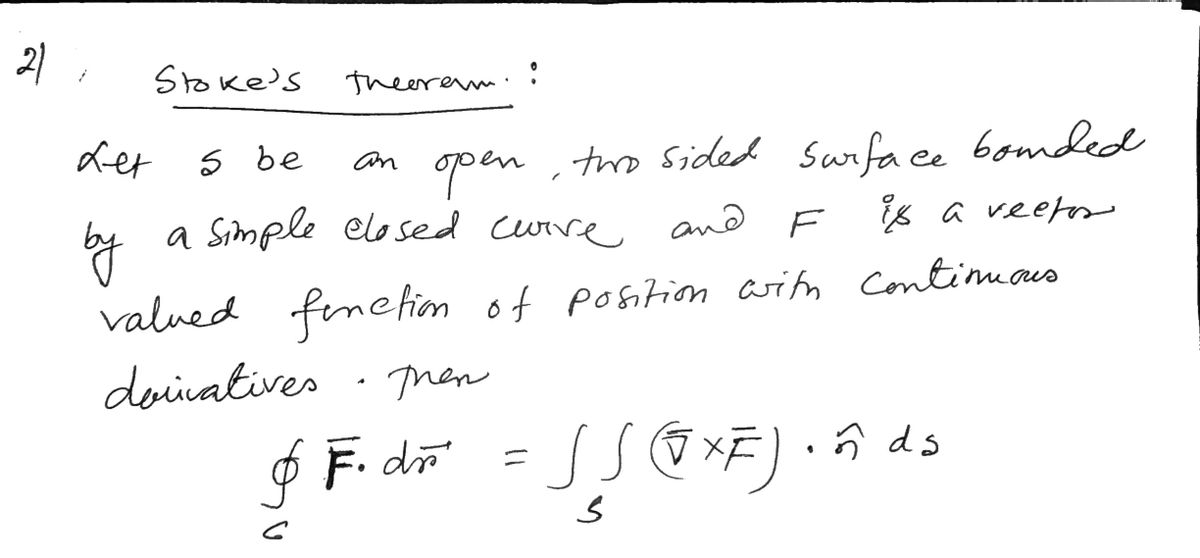 2) Stoke's theorem :
Let S be an open, two sided surface bounded
by a simple closed curve and F is a vector
valued function of position with continuous
derivatives. Then
∮_C F̅. dr⃗ = ∫∫_S (∇̅ × F̅) . n̂ ds